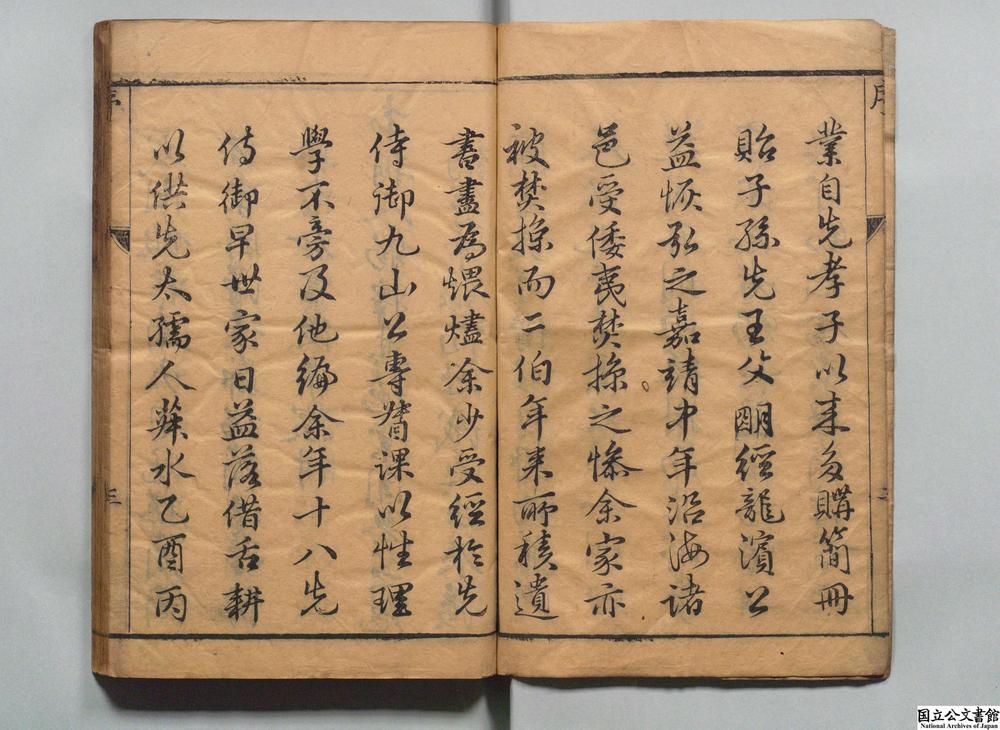 業自先孝子以来多購簡冊
貽子孫先王父明經龍濱公
益恢弘之嘉靖中年沿海諸
邑受倭夷焚掠之慘余家亦
被焚掠而二伯年来所積遺
書盡為煨燼余少受經於先
侍御九山公專督課以性理
學不旁及他編余年十八先
侍御早世家日益落借舌耕
以供先太孺人菽水乙酉丙
序
三
序
国立公文書館
National Archives of Japan